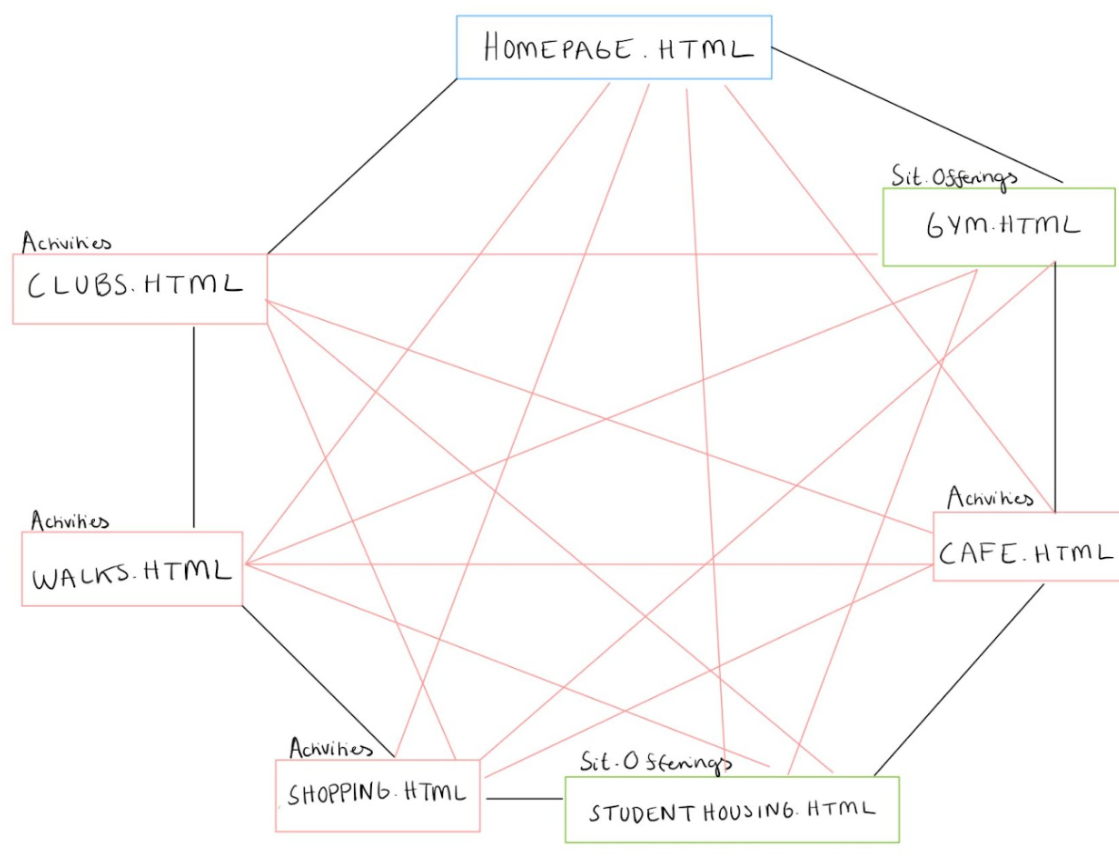 HOMEPAGE.HTML
Sit.Offerings
GYM.HTML
Activities
CLUBS.HTML
Activities
CAFE.HTML
Activities
WALKS.HTML
Activities
SHOPPING.HTML
Sit.Offerings
STUDENT HOUSING.HTML